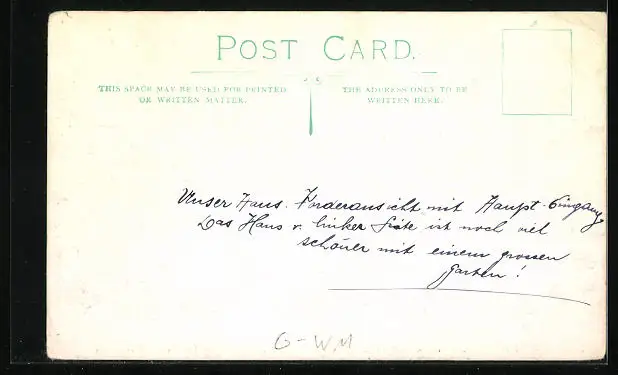 POST CARD.
THIS SPACE MAY BE USED FOR PRINTED
OR WRITTEN MATTER.
THE ADDRESS ONLY TO BE
WRITTEN HERE.
Unser Haus. Vorderansicht mit Haupt-Eingang
Das Haus v. linker Seite ist noch viel
schöner mit einem grossen
Garten!
G-WM